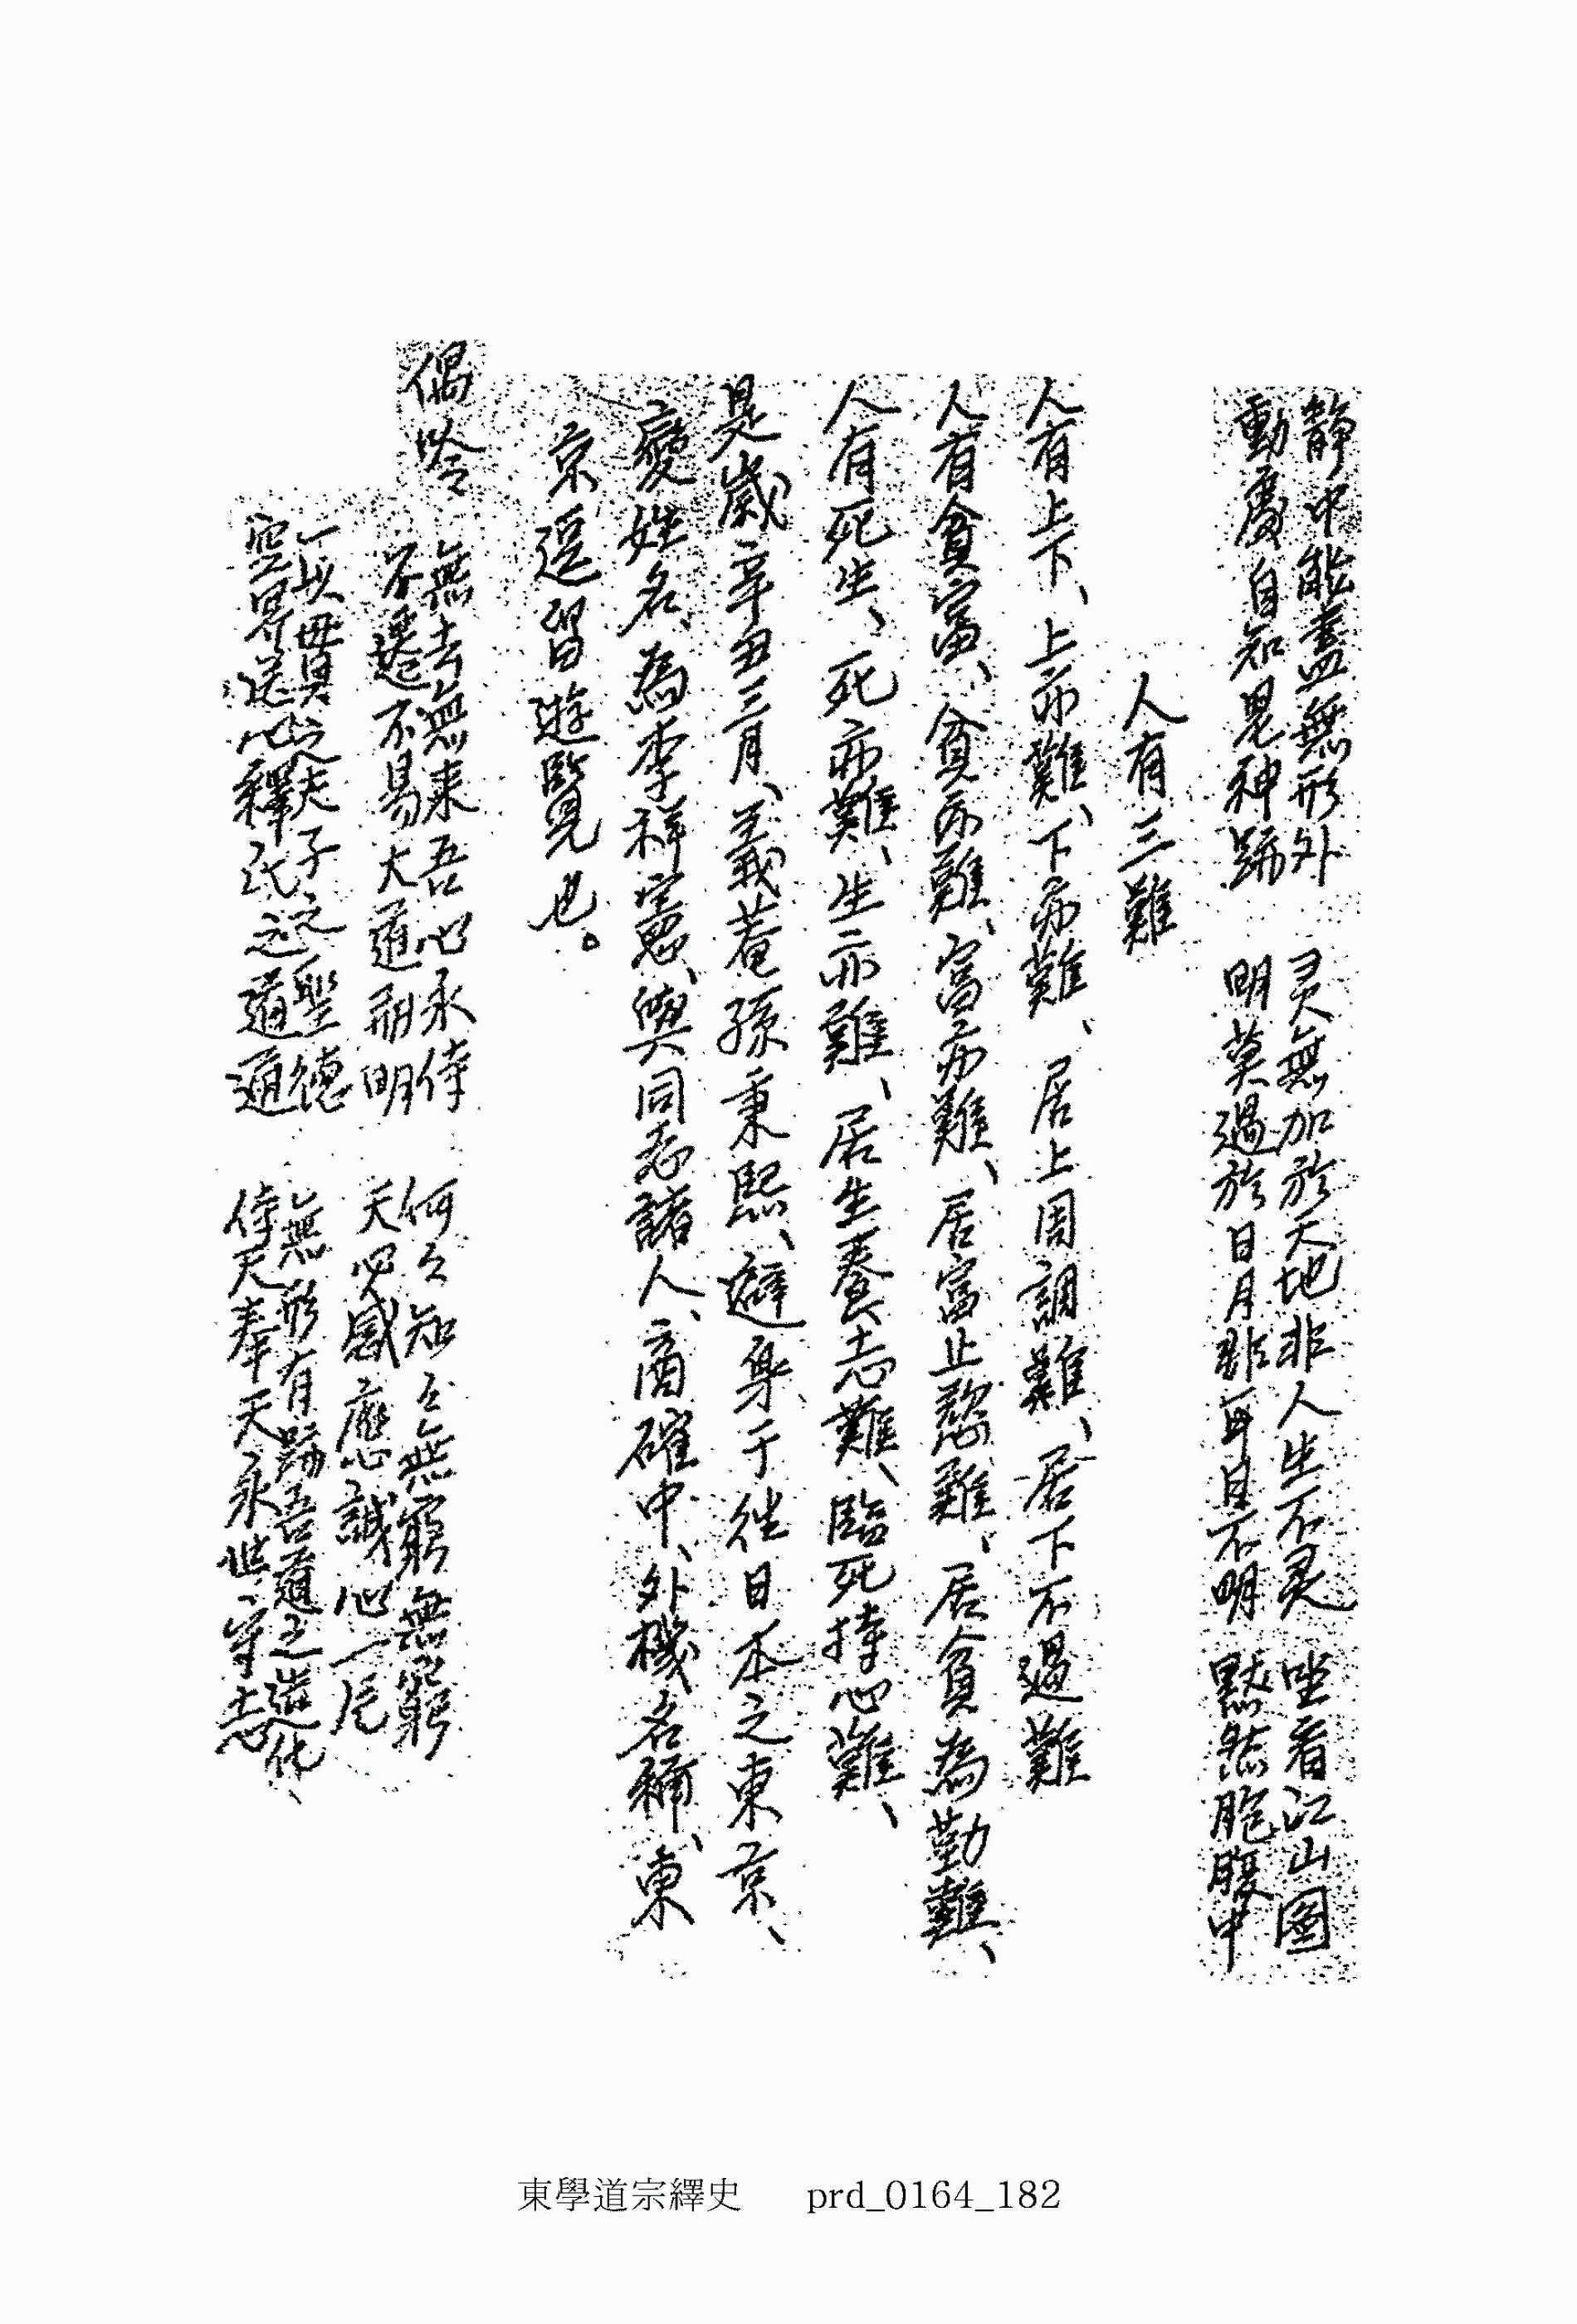 静中能盡無形外 灵無加於天地非人生不灵 坐看江山圖
動處自知鬼神跡 明莫過於日月非耳目不明 黙然胞腹中
人有三難
人有上下、上亦難、下亦難、居上周調難、居下不過難
人有貧富、貧亦難、富亦難、居富止慾難、居貧為勤難、
人有死生、死亦難、生亦難、居生養志難、臨死持心難、
是歲辛丑三月、義菴孫秉熙、避身于徃日本之東京、
變姓名、為李祥憲、與同志諸人、商確中、外機名稱、東
京逗留遊覽也。
偶吟 無去無来吾心永侍 何々知々無窮無窮
不遷不易大道形明 天必感應誠心一片
一以貫之夫子之聖德 無形有跡吾道之造化、
空界送心釋氏之道通 侍天奉天永世守志
東學道宗繹史 prd_0164_182